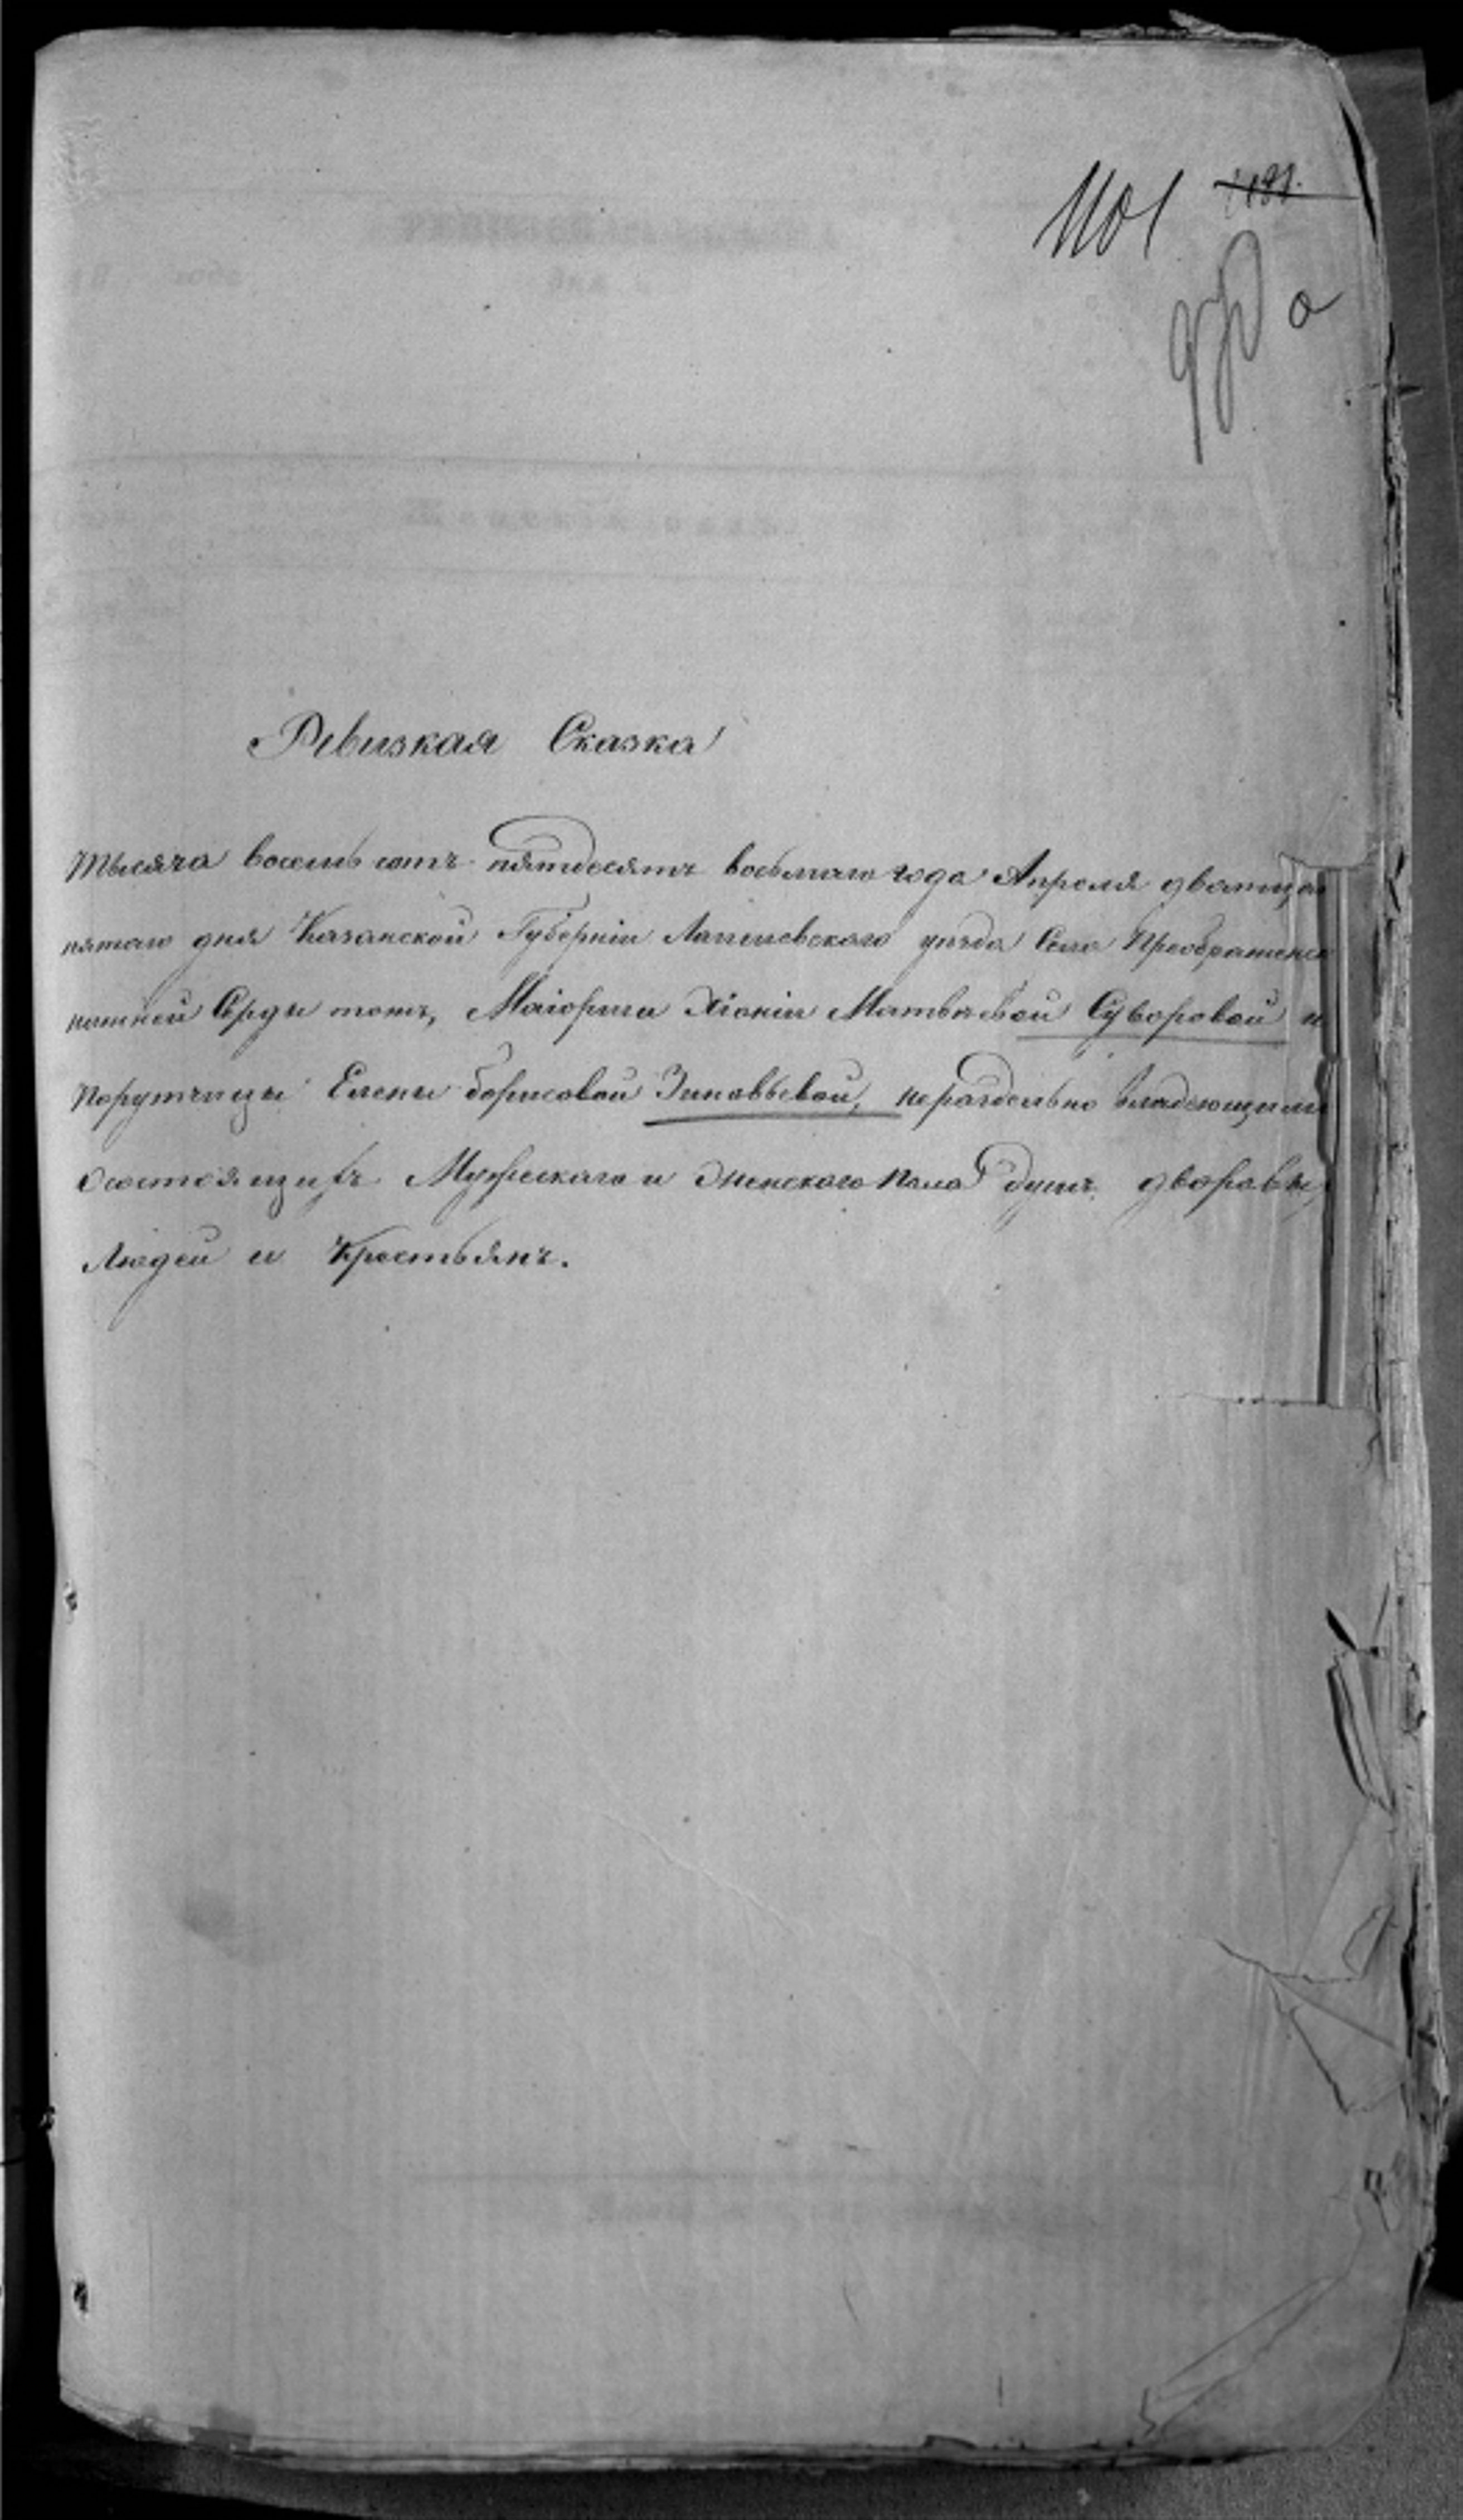 1101
970 а
Ревизкая Сказка
Тысяча восемь сотъ пятдесятъ восьмаго года Апреля дватца
пятаго дня Казанской Губерніи Лаишевскаго уѣзда Села Преображенск
Серды тожъ, Маіорши Хіоніи Матвѣевой Суворовой и
Порутчицы Елены Борисовой Зиновьевой, нераздельно владеющими
состоящихъ Мужескаго и Женскаго пола душъ дворовы
Людей и Крестьянъ.